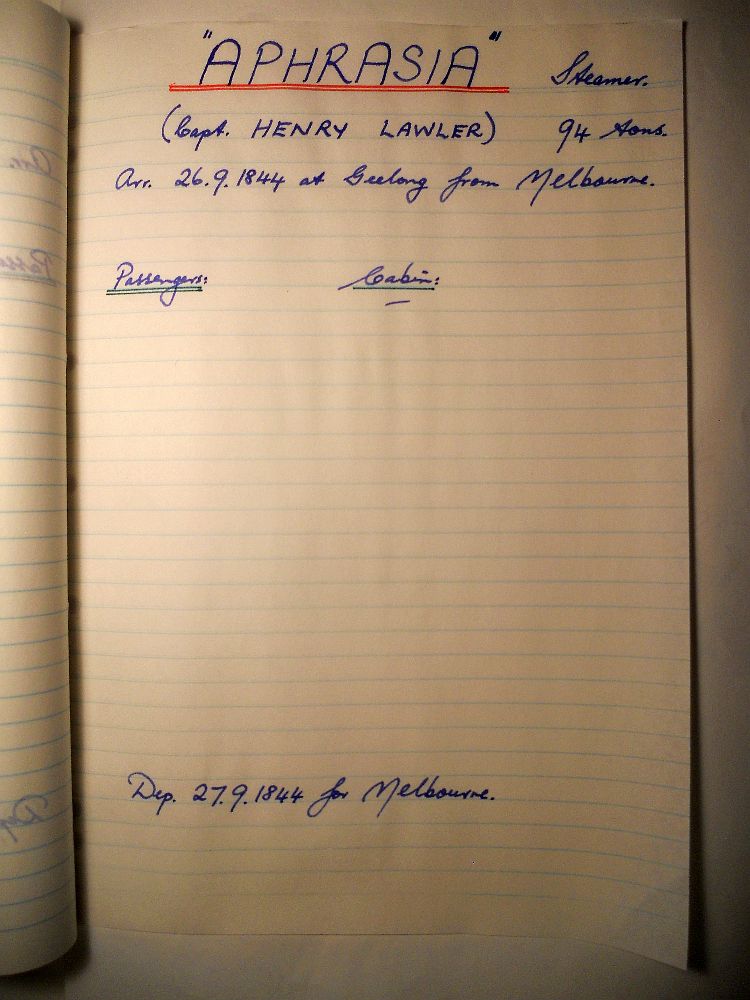 "APHRASIA" Steamer.
(Capt. HENRY LAWLER) 94 tons.
Arr. 26.9.1844 at Geelong from Melbourne.
Passengers: Cabin:
—
Dep. 27.9.1844 for Melbourne.